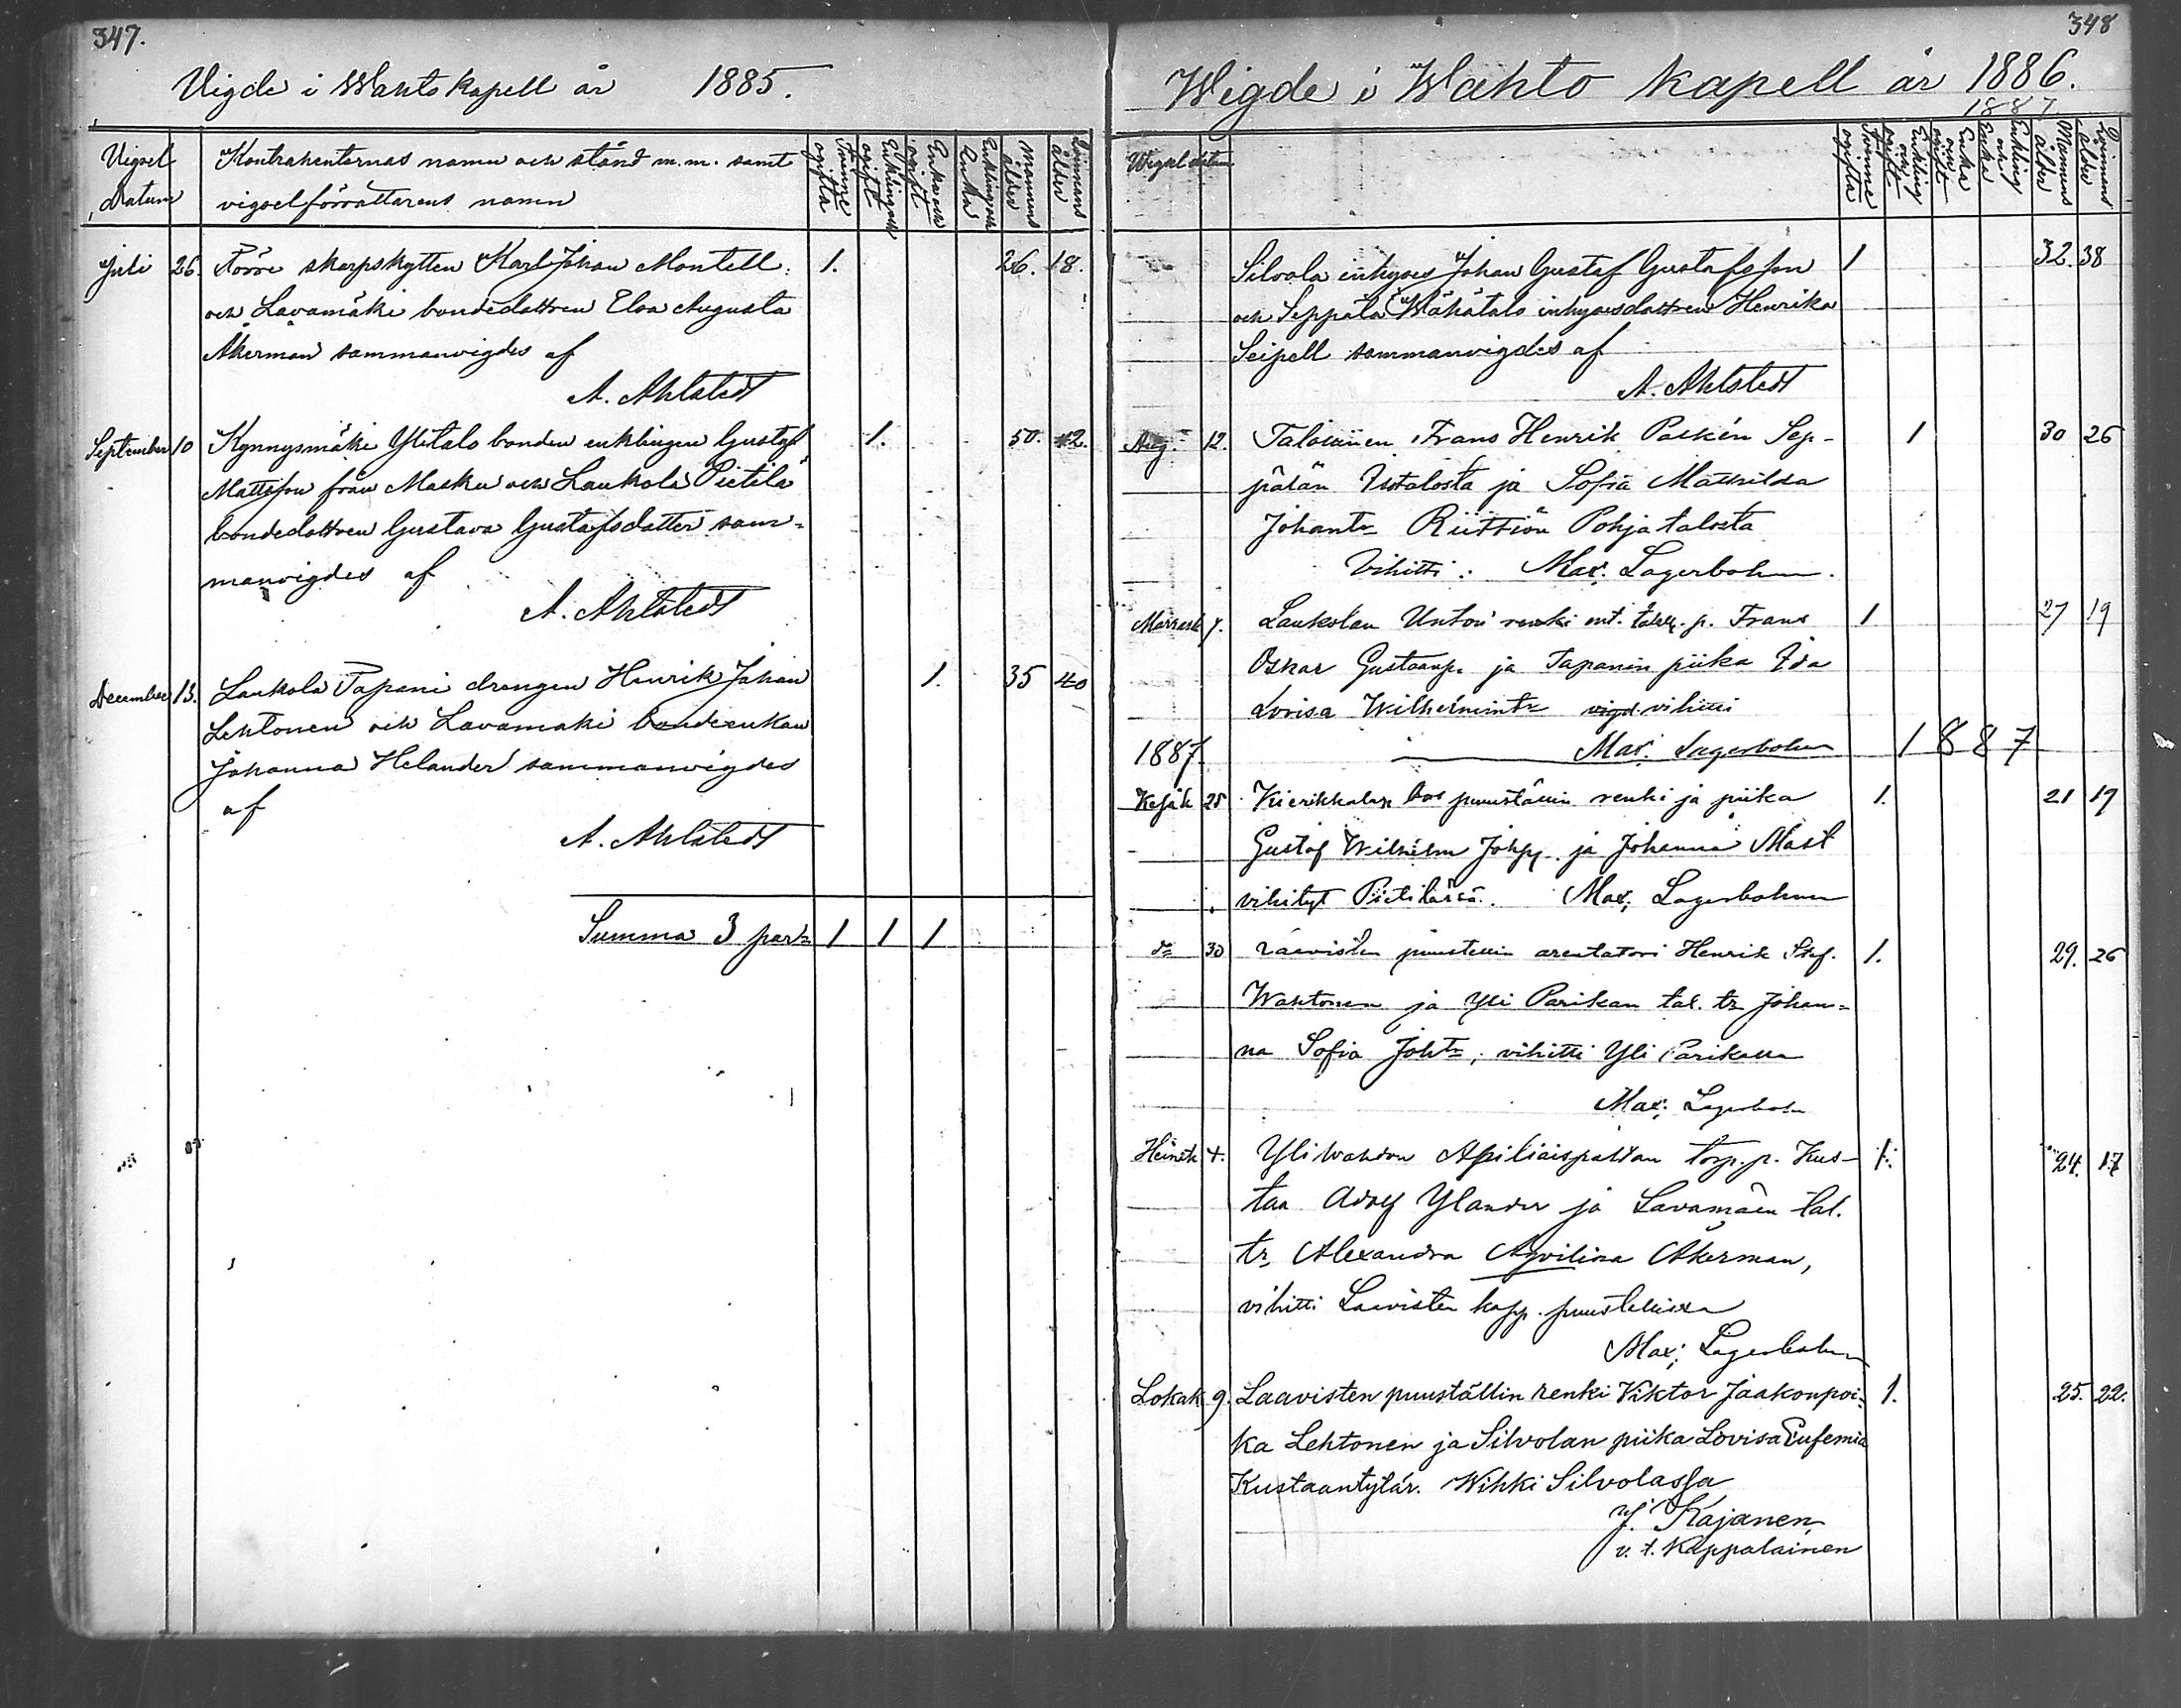 347.
Vigde i Wahto kapell år 1885.
Vigsel Datum
Kontrahenternas namn och stånd m.m. samt
vigselförrättarens namn
Tvenne ogifta
Enkling och ogift
Enka och ogift
Enkling och Enka
Mannens ålder
Qvinnans ålder
Juli 26. Förre skarpskytten Karl Johan Montell 1. 26. 18.
och Lavamäki bondedottren Elva Augusta
Åkerman sammanvigdes af
A. Ahlstedt
September 10 Kynnysmäki Ylitalo bonden enklingen Gustaf 1. 50. 42.
Mattsson från Masku och Laukola Pietilä
bondedottren Gustava Gustafsdotter sam-
manvigdes af
A. Ahlstedt
December 13. Laukola Tapani drengen Henrik Johan 1. 35 40
Lehtonen och Lavamäki bondeenkan
Johanna Helander sammanvigdes
af
A. Ahlstedt
Summa 3 par 1 1 1
348
Wigde i Wahto kapell år 1886.
1887
Wigsel datum
Tvenne ogifta
Enkling och ogift
Enka och ogift
Enkling och Enka
Mannens ålder
Qvinnans ålder
Silvola inhyses Johan Gustaf Gustafsson 1 32. 38
och Seppälä Wähätalo inhysesdottren Henrika
Seipell sammanvigdes af
A. Ahlstedt
Aug. 12. Talollinen Frans Henrik Sep- 1 30 26
pälän Uutalosta ja Sofia Mathilda
Johantr Riittiön Pohjatalosta
Vihitti: Max. Lagerbohm.
Marrask 7. Laukolan Unton renki ent. p. Frans 1 27 19
Oskar Gustaanp. ja Tapanin piika Ida
Lovisa Wilhelmintr vigd. vihitti
1887. Max. Lagerbohm 1887
Kesäk 25 Kierikkalan puuställin renki ja piika 1. 21 19
Gustaf Wilhelm ja Johanna
vihityt Pietilässä. Max. Lagerbohm
do 30 Laavisten puustellin arentatori Henrik Stef. 1. 29. 26
Wahtonen ja Yli Parikan tal. tr Johan-
na Sofia Johtr, vihitti Yli Parikalla
Max. Lagerbohm
Heinäk 4. Yli Wahdon torp.p. Kus- 1. 24. 17
taa Adolf Ylander ja Lavamäen tal.
tr. Alexandra Aqvilina Åkerman,
vihitti Laavisten kapp. puustellissa
Max. Lagerbohm
Lokak 9. Laavisten puuställin renki Viktor Jaakonpoi- 1. 25. 22.
ka Lehtonen ja Silvolan piika Lovisa Eufemia
Kustaantytär. Wihki Silvolassa
J. Kajanen
v. t. Kappalainen